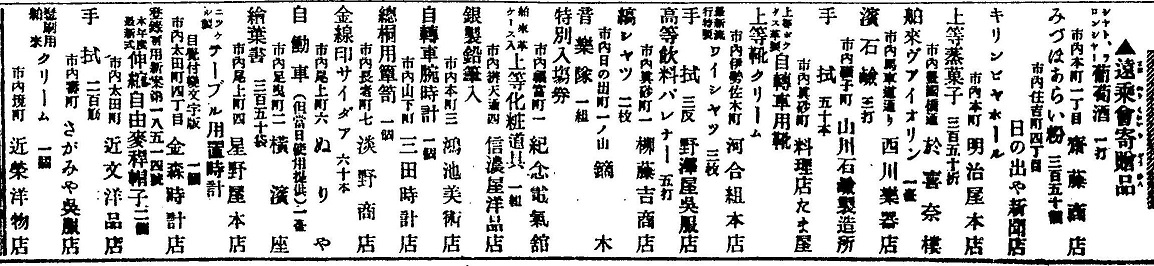 ▲遠乘會寄贈品
シャトー、ラロンシャー葡萄酒 一打
市内本町一丁目 齋藤商店
みづはあらい粉 三百五十個
市内住吉町四丁目
日の出や新聞店
キリンビヤホール
市内本町 明治屋本店
上等蒸菓子 三百五十折
市内豊國橋通 於喜奈樓
舶來ヴァイオリン 一臺
市内馬車道通り 西川樂器店
濱石鹸 三打
市内磯子町 山川石鹸製造所
手拭 五十本
市内眞砂町 料理店たま屋
上等ボックス革製自轉車用靴
上等靴クリーム
市内伊勢佐木町 河合組本店
最新流行特製ワイシャツ 三枚
手拭 三反 野澤屋呉服店
高等飲料バレナー 五打
市内眞砂町一 柳藤吉商店
縞シャツ 二枚
市内日の出町一ノ山 鏑木
音樂隊 一組
特別入場券
市内福富町一 紀念電氣館
舶來革ケース入上等化粧道具 一組
市内辨天通四 信濃屋洋品店
銀製鉛筆入
市内本町三 鴻池美術店
自轉車腕時計 一個
市内山下町 三田時計店
總桐用簞笥 一個
市内長者町七 淡野商店
金線印サイダア 六十本
市内尾上町六 ぬりや
自動車(但當日使用提供)一臺
市内足曳町二 横濱座
繪葉書 三百五十袋
市内尾上町四 星野屋本店
ニッケル製テーブル用置時計
目覺付繪文字版 一個
市内太田町四丁目 金森時計店
登録實用新案第一八五一四號
本年度最新式伸縮自由麥稈帽子二個
市内太田町 近文洋品店
手拭 二百筋
市内壽町 さがみや呉服店
髭剃用舶來クリーム 一個
市内境町 近榮洋物店